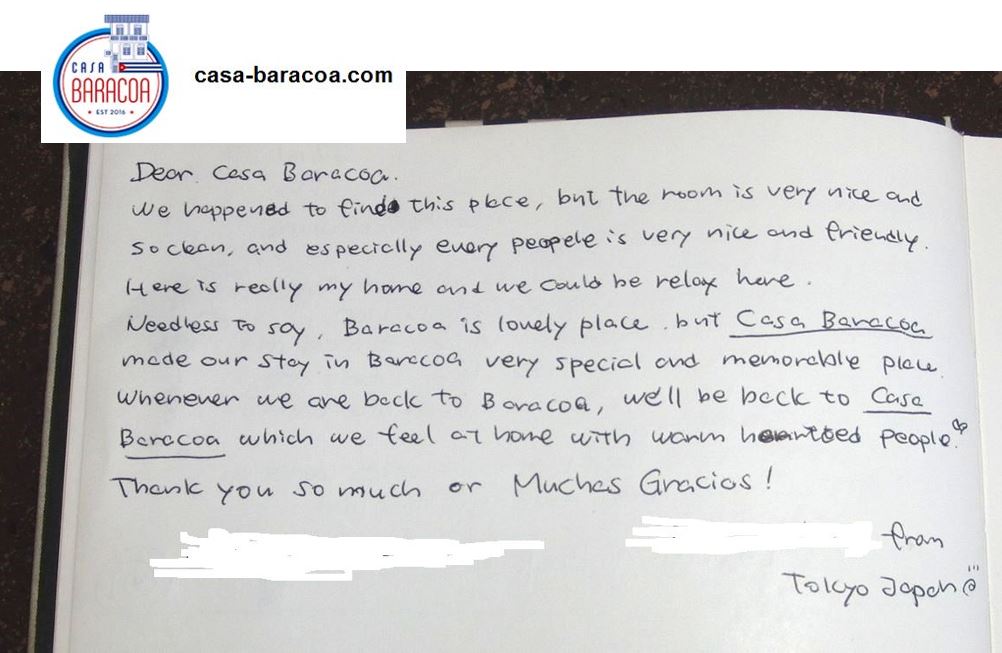 CASA
BARACOA
EST 2016
casa-baracoa.com
Dear Casa Baracoa.
We happened to find this place, but the room is very nice and
so clean, and especially every peopele is very nice and friendly.
Here is really my home and we could be relax here.
Needless to say, Baracoa is lovely place. but Casa Baracoa
made our stay in Baracoa very special and memorable place.
Whenever we are back to Baracoa, we'll be back to Casa
Baracoa which we feel at home with warm hearted people.
Thank you so much or Muchas Gracias!
from
Tokyo Japan